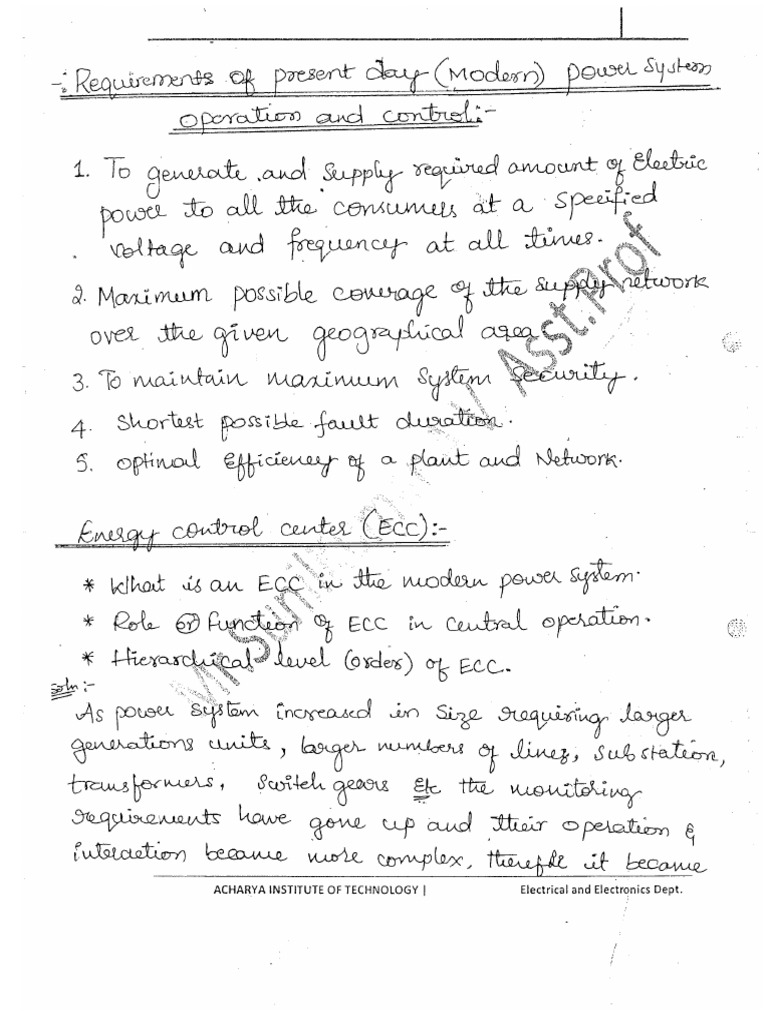 -: Requirements of present day (Modern) power system
operation and control:-
1. To generate and supply required amount of Electric
power to all the consumers at a specified
voltage and frequency at all times.
2. Maximum possible coverage of the supply network
over the given geographical area
3. To maintain maximum system security.
4. Shortest possible fault duration.
5. Optimal Efficiency of a plant and Network.
Energy control center (ECC):-
* What is an ECC in the modern power system.
* Role or function of ECC in central operation.
* Hierarchical level (order) of ECC.
Soln:-
As power system increased in size requiring larger
generations units, larger numbers of lines, substation,
transformers, switch gears Etc the monitoring
requirements have gone up and their operation &
interaction became more complex, therefore it became
ACHARYA INSTITUTE OF TECHNOLOGY | Electrical and Electronics Dept.
Asst.Prof